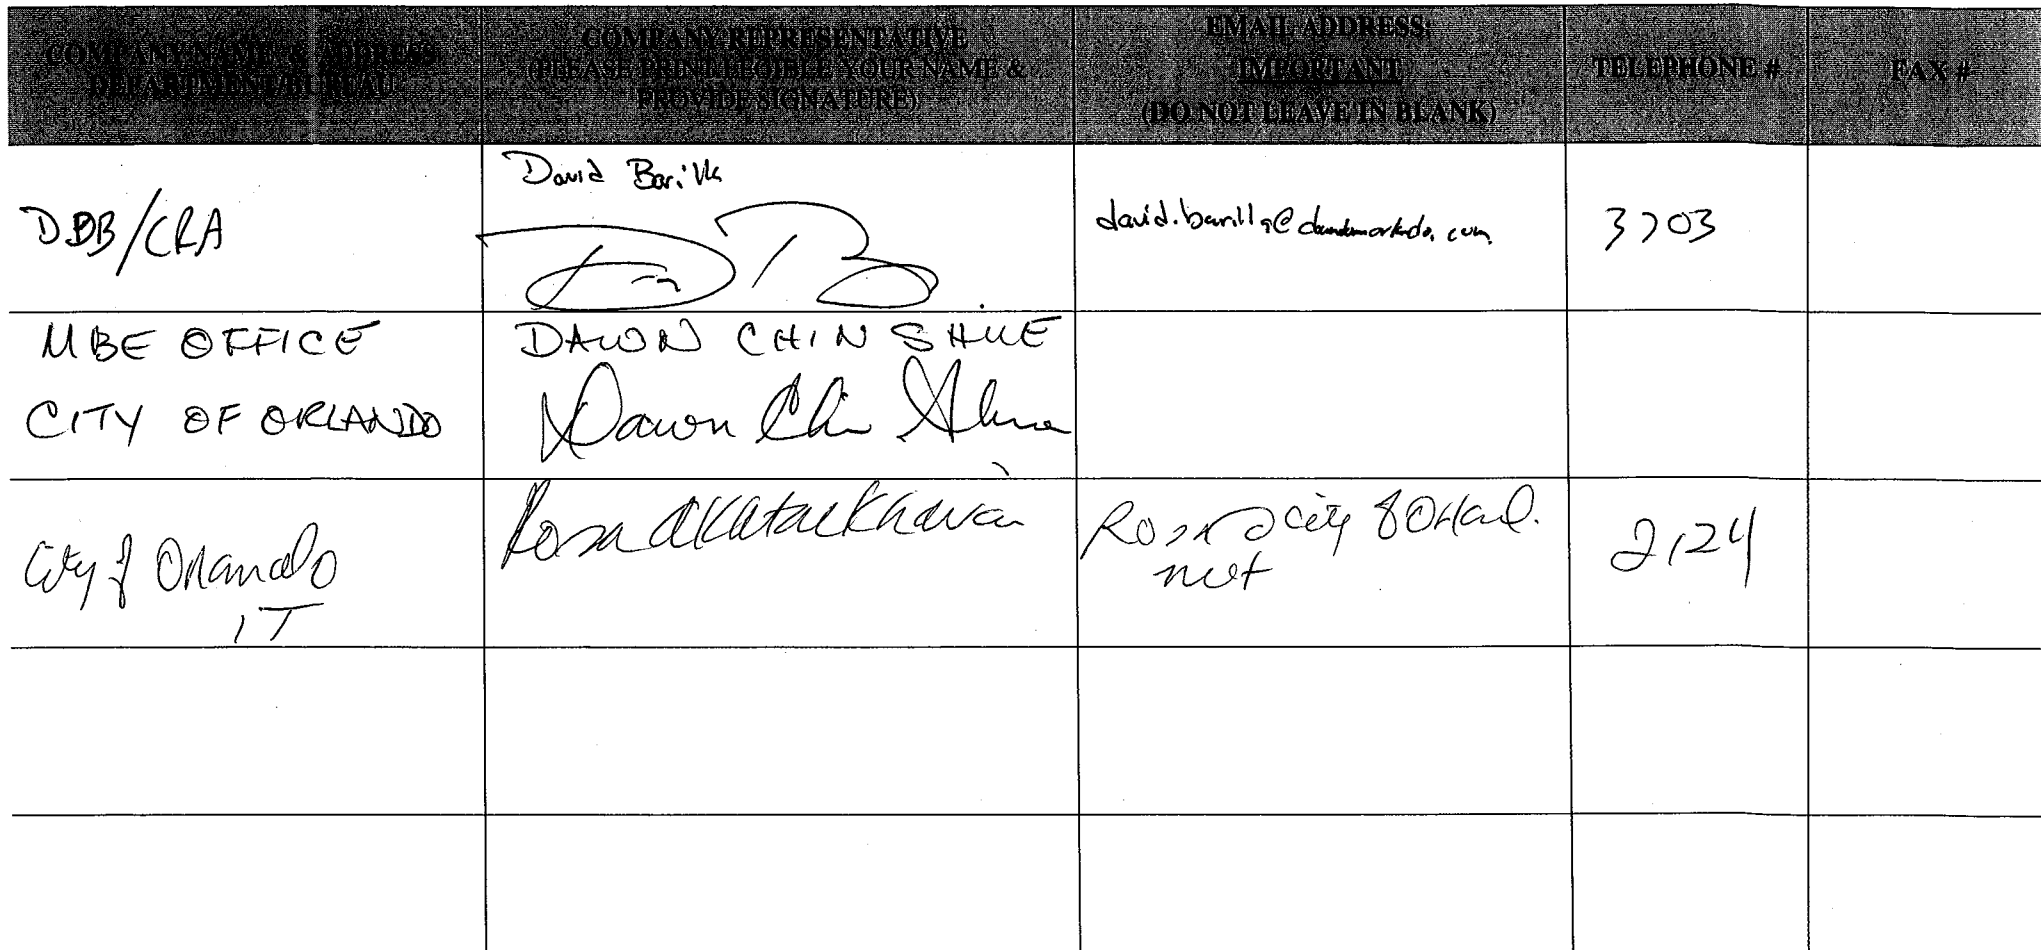 COMPANY NAME & ADDRESS
DEPARTMENT/BUREAU
COMPANY REPRESENTATIVE
(PLEASE PRINT LEGIBLE YOUR NAME &
PROVIDE SIGNATURE)
EMAIL ADDRESS:
IMPORTANT
(DO NOT LEAVE IN BLANK)
TELEPHONE #
FAX #
DDB/CRA
David Barilla
david.barilla@downtownorlando.com
3703
MBE OFFICE
CITY OF ORLANDO
DAWN CHIN SHUE
Dawn Chin Shue
City of Orlando
IT
Rosa
Rosa @ city of Orland.
net
2124